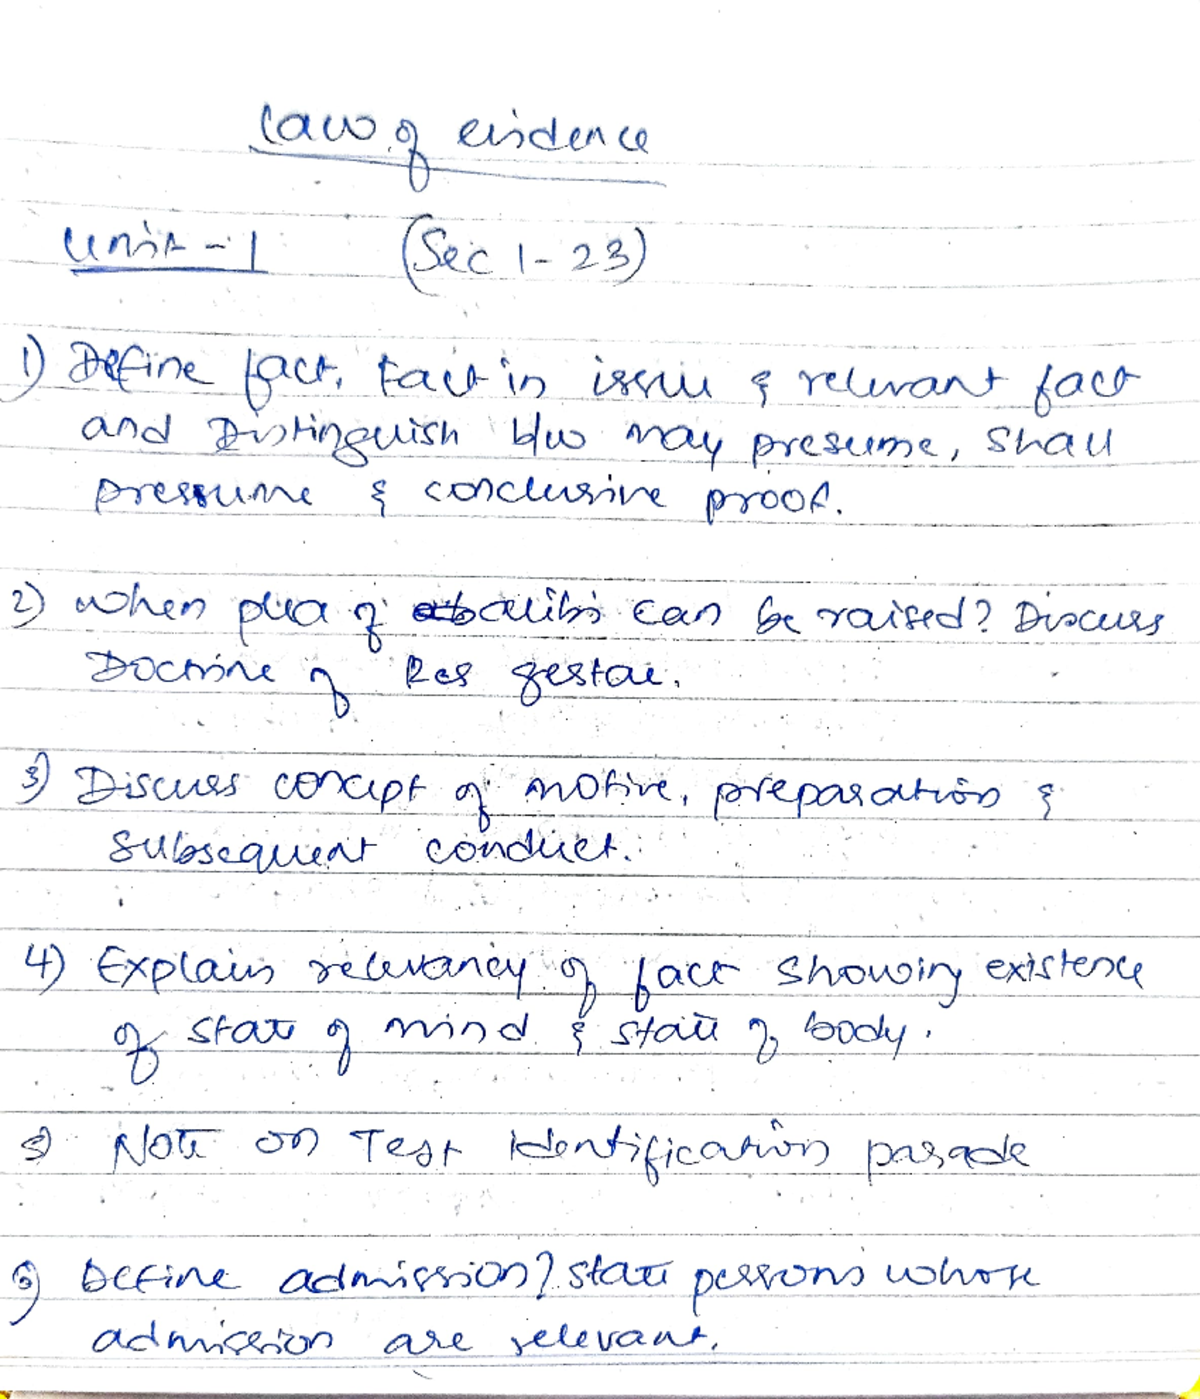 Law of evidence
Unit - 1 (Sec 1 - 23)
1) Define fact, fact in issue & relevant fact
and Distinguish b/w may presume, shall
pressume & conclusive proof.
2) when plea of alibi can be raised? Discuss
Doctrine of Res gestae.
3) Discuss concept of motive, preparation &
subsequent conduct.
4) Explain relevancy of fact showing existence
of state of mind & state of body.
5) Note on Test identification parade
6) Define admission? state persons whose
admission are relevant.